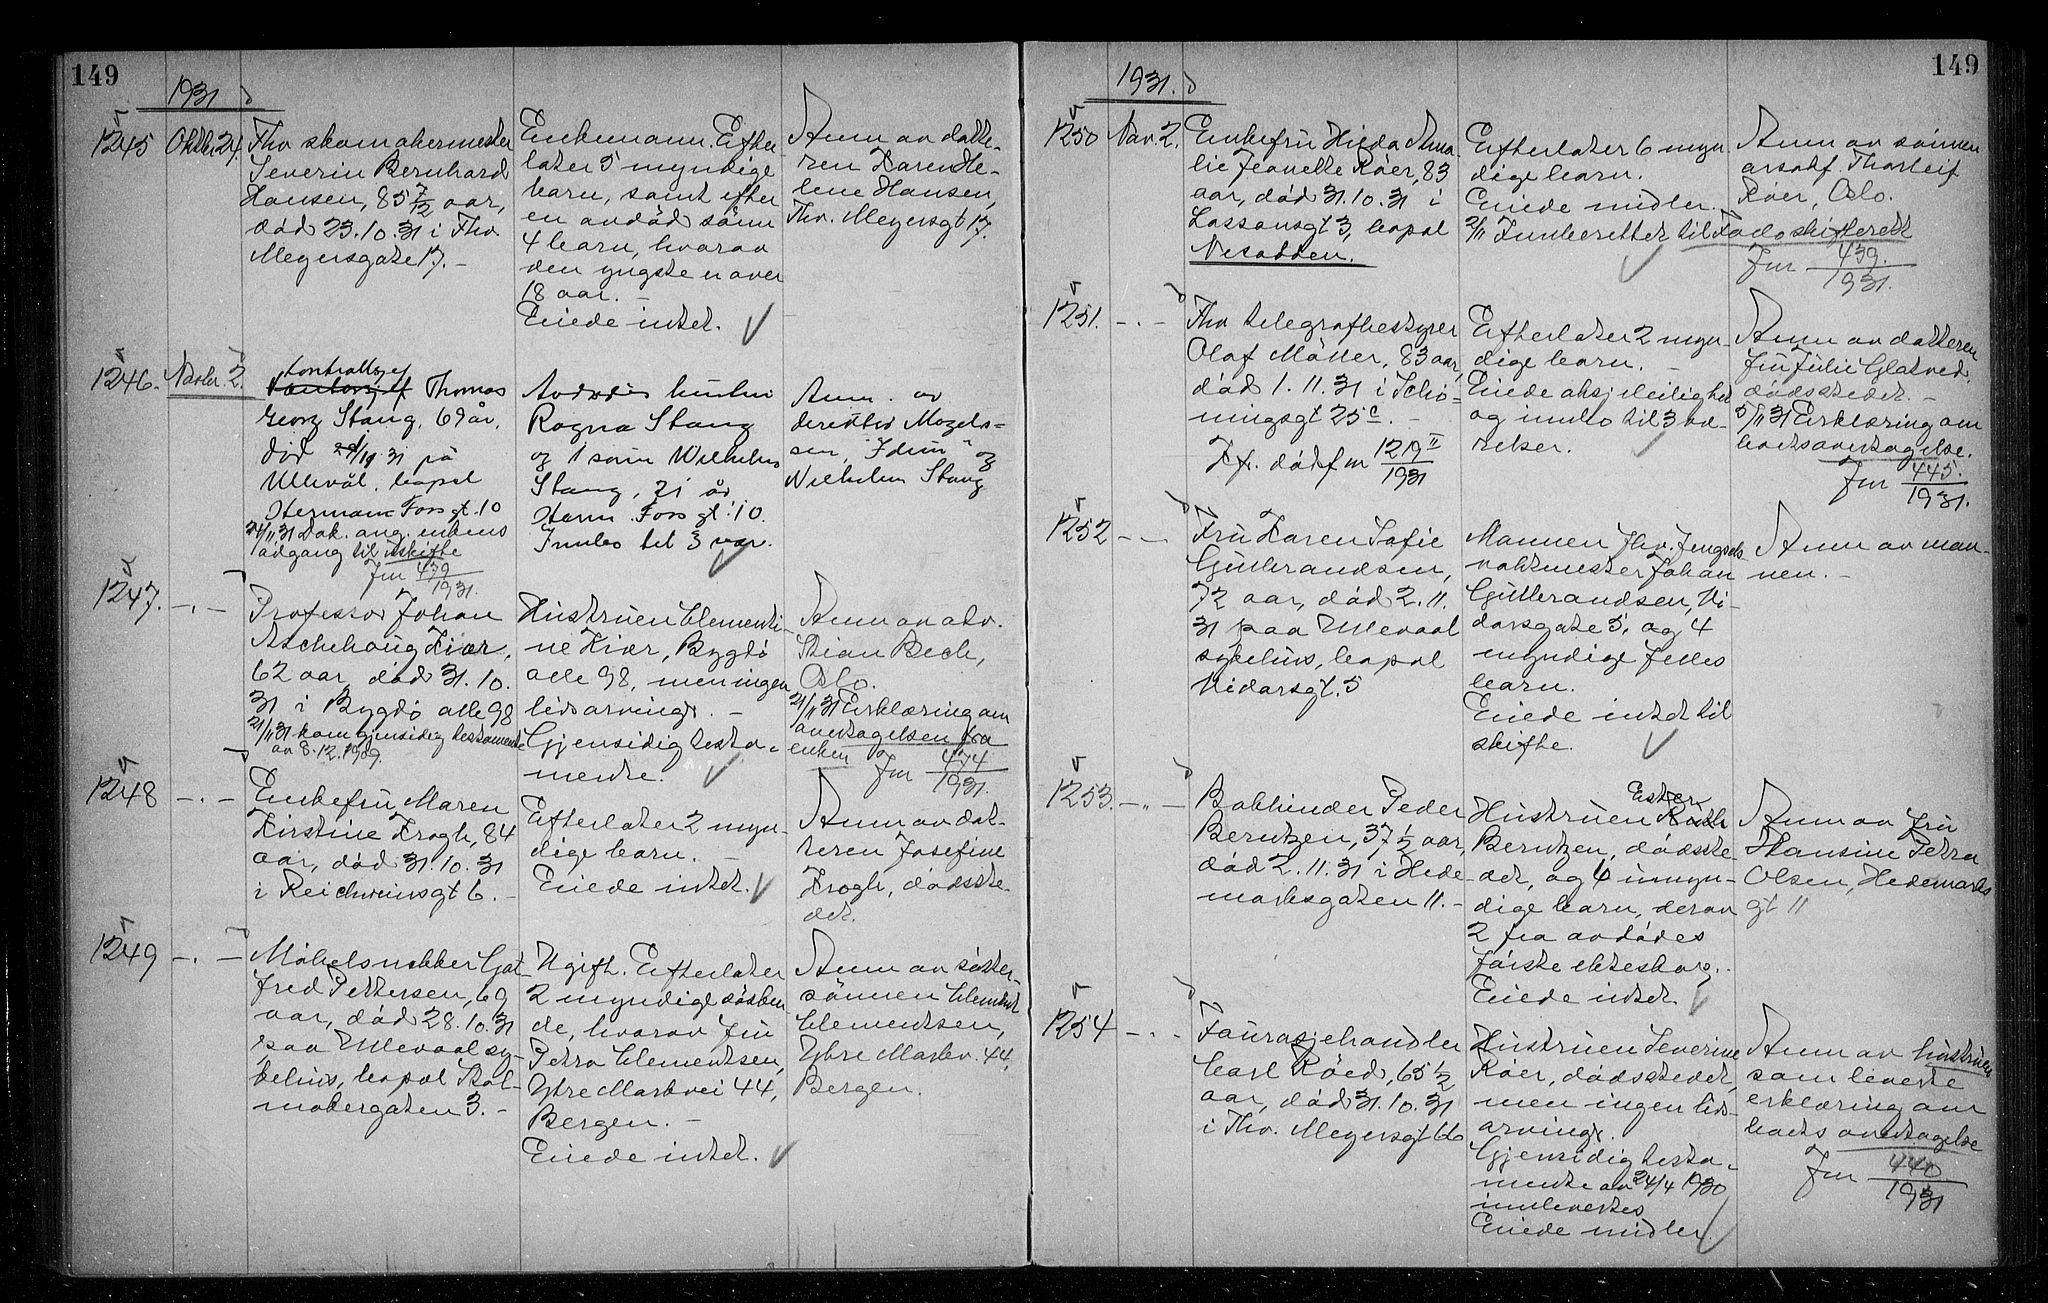 149
1931
1245 Oktbr 24.
Fhv skomakermester
Severin Bernhard
Hansen, 85 7/12 aar,
död 23.10.31 i Thv.
Meyersgate 17. -
Enkemann. Efter
later 5 myndige
barn, samt efter
en avdöd sönn
4 barn, hvorav
den yngste er over
18 aar. -
Eiede intet.
Anm av datte-
ren Karen He-
lene Hansen,
Thv. Meyersgt 17.
1246. Novbr. 2.
Thomas
Georg Stang, 69 år,
död 31 på
Ullevål, bopæl
Herman Foss gt. 10
24/11 31 Dok. ang. enkens
adgang til uskifte
Jnr 479/1931.
Avdødes hustru
Ragna Stang
og 1 sønn Wilhelm
Stang, 21 år
Herm. Foss gt. 10.
Innbo til 3 vær.
Anm. av
direktør Mogels-
sen, "Idun" og
Wilhelm Stang
1247. -"-
Professor Johan
Aschehoug Kiær,
62 aar, död 31.10.
31 i Bygdö alle 98
21/11 31 kom gjensidig testamente
av 8.12.1909.
Hustruen Clementi-
ne Kiær, Bygdö
alle 98, men ingen
livsarving. -
Gjensidig testa-
mente.
Anm av adv.
Stian Bech,
Oslo.
21/11 31 Erklæring om
overtagelsen fra
enken Jnr 474/1931.
1248 -"-
Enkefru Maren
Kirstine Krogh, 84
aar, död 31.10.31
i Reichweinsgt 6. -
Efterlater 2 myn-
dige barn. -
Eiede intet.
Anm av dat-
teren Josefine
Krogh, dödsste-
det.
1249 -"-
Möbelsnekker Got-
fred Pettersen, 69
aar, död 28.10.31
paa Ullevaal sy-
kehus, bopæl Stol-
makergaten 3. -
Ugift. Efterlater
2 myndige sösken-
de, hvorav fru
Petra Clementsen,
Ytre Markvei 44,
Bergen. -
Eiede intet.
Anm av söster-
sönnen Clement
Clementsen,
Ytre Markv. 44,
Bergen.
149
1931.
1250 Nov. 2.
Enkefru Hilda Ama-
lie Jeanette Röer, 83
aar, död 31.10.31 i
Lassonsgt 3, bopæl
Nesodden.
Efterlater 6 myn
dige barn.
Eiede midler.
2/11 Innberettet til Follo skifterett
Jnr 439/1931.
Anm av sönnen
Thorleif
Röer, Oslo.
1251. -"-
Fhv telegrafbestyrer
Olaf Möller, 83 aar,
död 1.11.31 i Schö-
ningsgt 25 c. -
Kfr. dödsfnr 1219 II/1931
Efterlater 2 myn-
dige barn.
Eiede aksjeleilighet
og innbo til 3 væ-
relser.
Anm av datteren
fru Julie Glatved,
dödsstedet. -
5/11 31 Erklæring om
boets overtagelse.
Jnr 445/1931.
1252 -"-
Fru Karen Sofie
Gulbrandsen,
72 aar, död 2.11.
31 paa Ullevaal
sykehus, bopæl
Nidarsgt. 5
Mannen fhv. fengsels
vaktmester Johan
Gulbrandsen, Ni-
darsgate 5, og 4
myndige felles
barn.
Eiede intet til
skifte.
Anm av man-
nen. -
1253. -"-
Bokbinder Peder
Berntzen, 37 1/2 aar,
död 2.11.31 i Hede-
marksgaten 11. -
Hustruen Ester
Berntzen, dödsste-
det, og 4 umyn-
dige barn, derav
2 fra avdödes
förste ekteskap.
Eiede intet.
Anm av fru
Hansine Petra
Olsen, Hedemarks
gt 11
1254 -"-
Fourasjehandler
Carl Röed, 65 1/2
aar, död 31.10.31
i Thv. Meyersgt 66
Hustruen Severine
Röer, dödsstedet,
men ingen livs-
arving.
Gjensidig testa-
mente av 24/4 1930
innlevertes
Eiede midler.
Anm av hustruen
som leverte
erklæring om
boets overtagelse
Jnr 440/1931